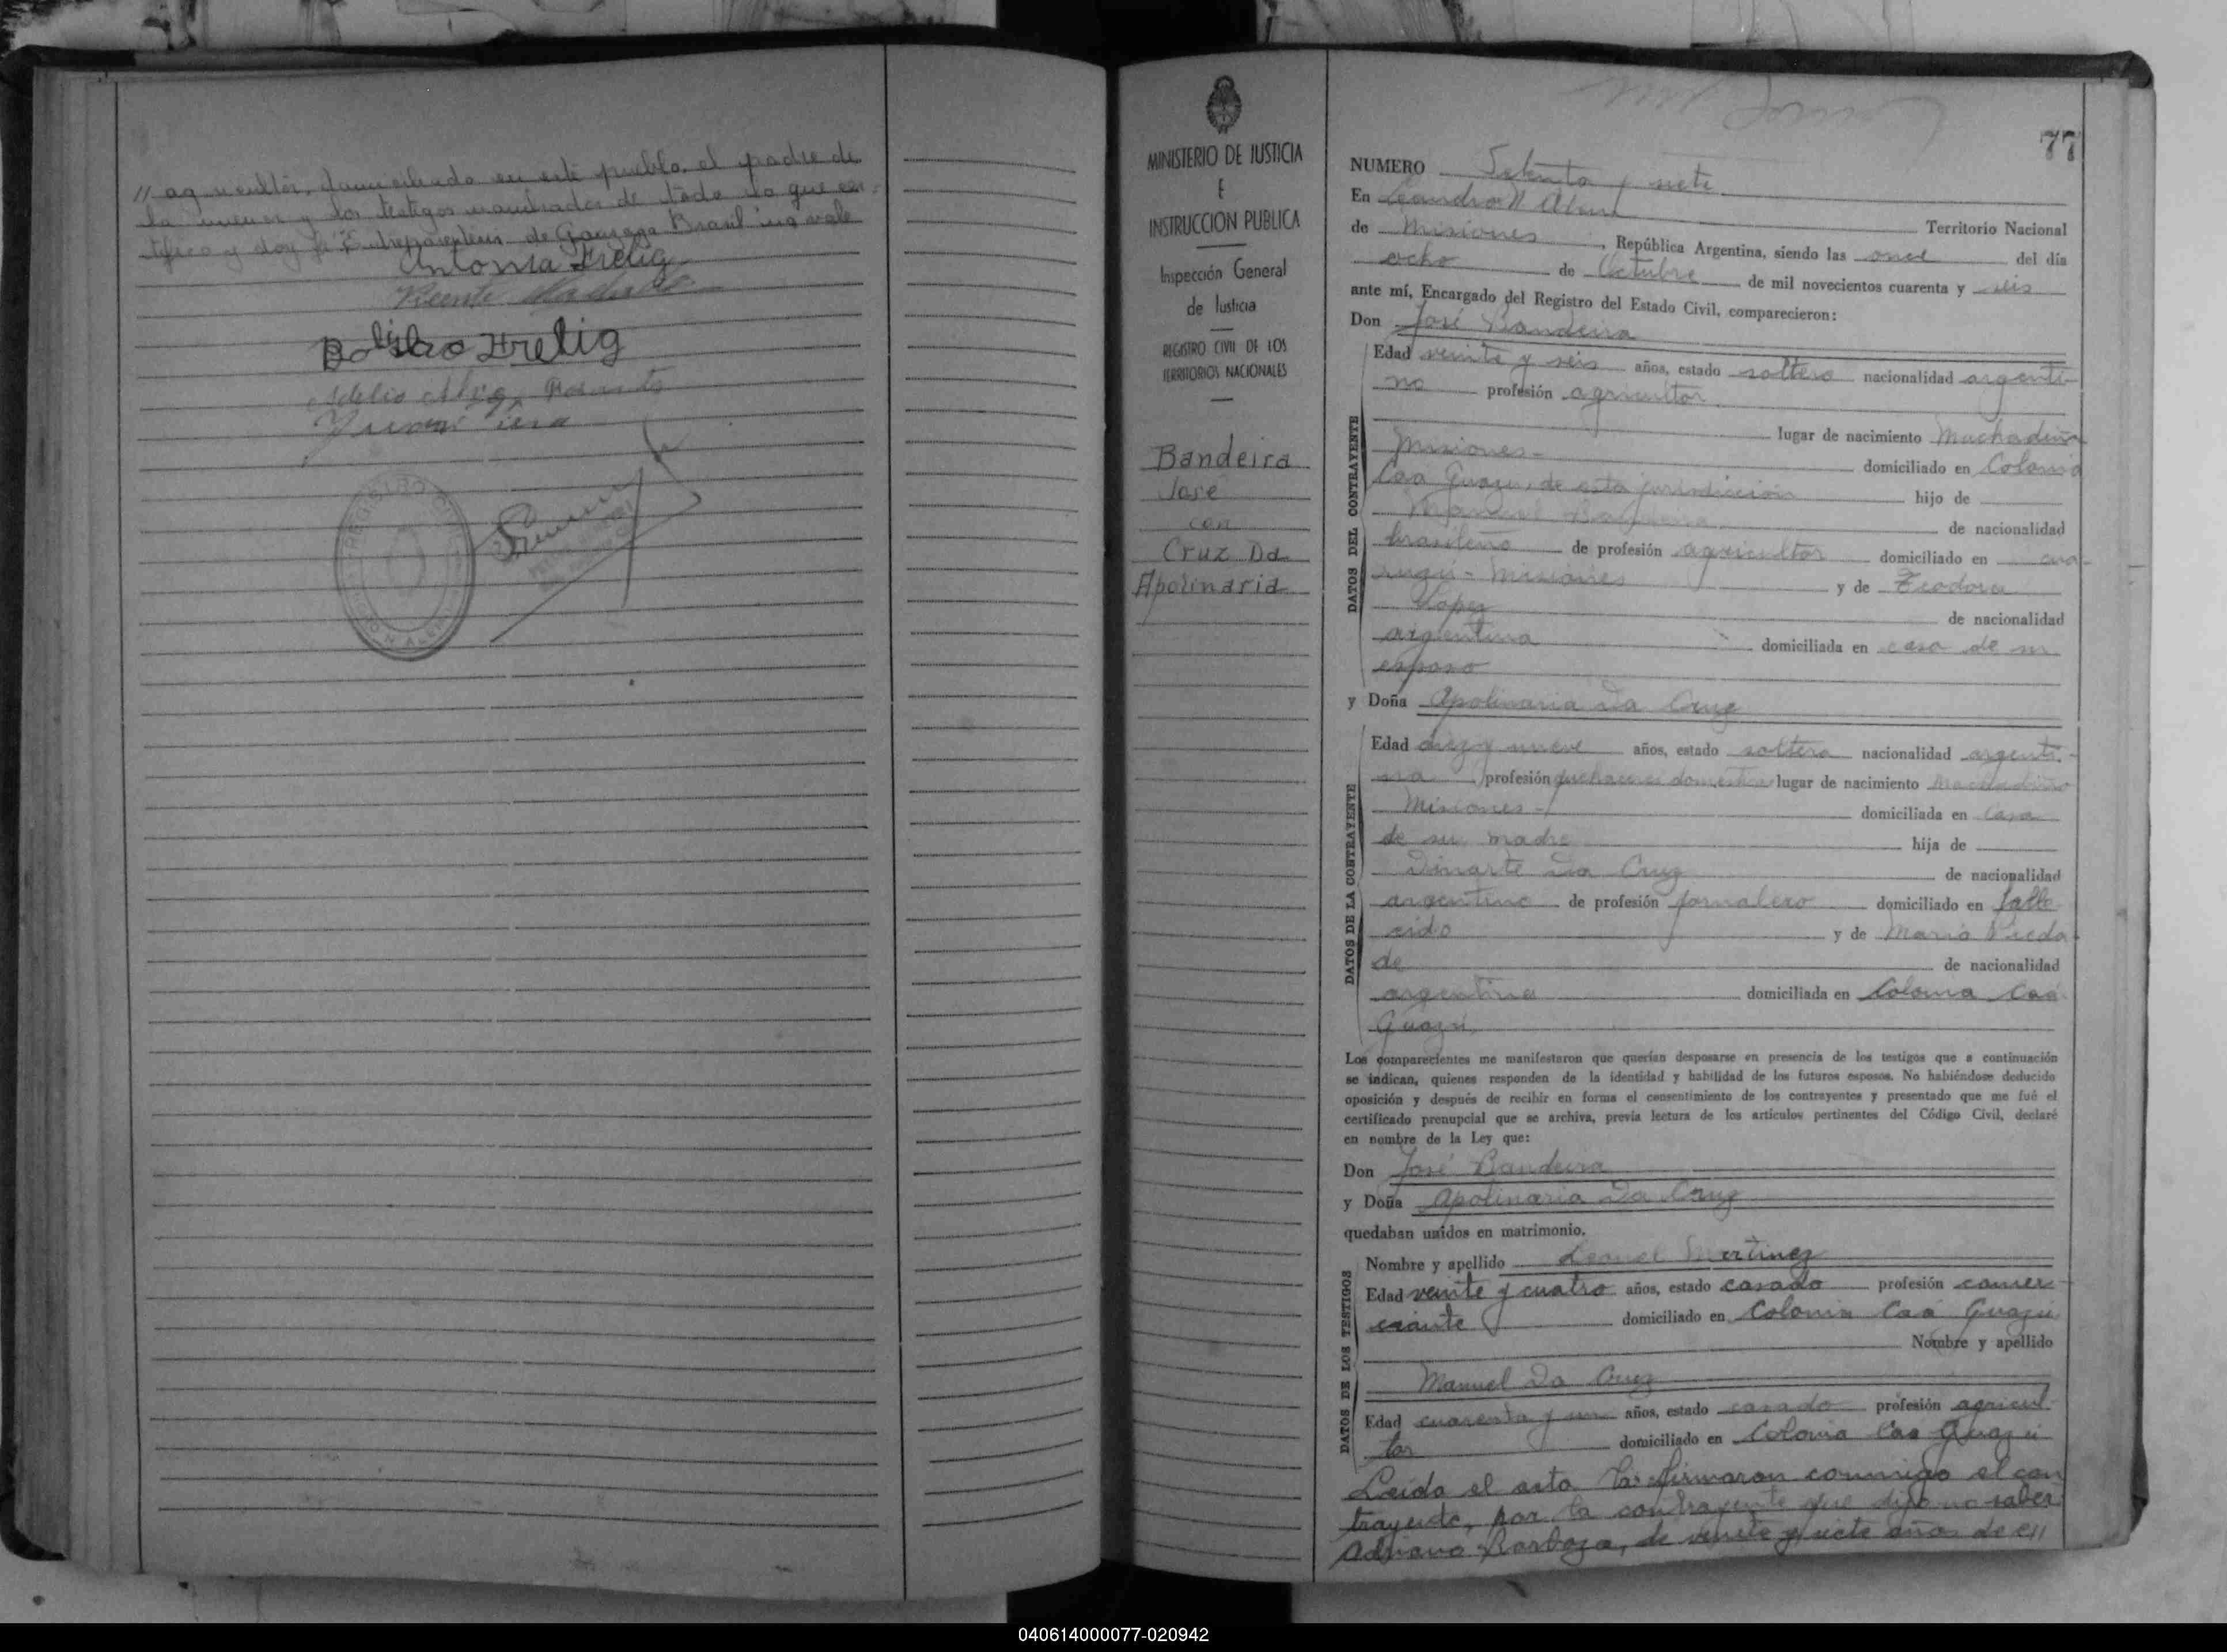 // agricultor, domiciliado en este pueblo, el padre de
la menor y los testigos nombrados de todo lo que cer-
tifico y doy fé Entreparentesis de Gonzaga Brasil no vale
Antonia Hrelig
Vicente
Boleslao Hrelig
REGISTRO CIVIL
77
MINISTERIO DE JUSTICIA
E
INSTRUCCION PUBLICA
Inspección General
de Justicia
REGISTRO CIVIL DE LOS
TERRITORIOS NACIONALES
Bandeira
José
con
Cruz Da
Apolinaria
NUMERO Setenta y siete
En Leandro N Alem Territorio Nacional
de Misiones, República Argentina, siendo las once del día
ocho de Octubre de mil novecientos cuarenta y seis
ante mí, Encargado del Registro del Estado Civil, comparecieron:
Don José Bandeira
DATOS DEL CONTRAYENTE
Edad veinte y seis años, estado soltero nacionalidad argenti-
no profesión agricultor
lugar de nacimiento Machadiño
Misiones- domiciliado en Colonia
Caa Guazú, de esta jurisdicción hijo de
Manuel Bandeira de nacionalidad
brasileño de profesión agricultor domiciliado en
Misiones y de Teodora
López de nacionalidad
argentina domiciliada en casa de su
esposo
y Doña Apolinaria Da Cruz
DATOS DE LA CONTRAYENTE
Edad diez y nueve años, estado soltera nacionalidad argenti-
na profesión quehaceres domestico lugar de nacimiento Machadiño
Misiones- domiciliada en casa
de su madre hija de
Dinarte Da Cruz de nacionalidad
argentino de profesión jornalero domiciliado en falle
cido y de Maria Pieda
de de nacionalidad
argentina domiciliada en Colonia Caá
Guazú,
Los comparecientes me manifestaron que querían desposarse en presencia de los testigos que a continuación
se indican, quienes responden de la identidad y habilidad de los futuros esposos. No habiéndose deducido
oposición y después de recibir en forma el consentimiento de los contrayentes y presentado que me fué el
certificado prenupcial que se archiva, previa lectura de los artículos pertinentes del Código Civil, declaré
en nombre de la Ley que:
Don José Bandeira
y Doña Apolinaria Da Cruz
quedaban unidos en matrimonio.
DATOS DE LOS TESTIGOS
Nombre y apellido Leonel Martinez
Edad veinte y cuatro años, estado casado profesión comer-
ciante domiciliado en Colonia Caá Guazú
Nombre y apellido
Manuel Da Cruz
Edad cuarenta y un años, estado casado profesión agricul-
tor domiciliado en Colonia Caa Guazú
Leída el acta la firmaron conmigo el con
trayente, por la contrayente que dijo no saber
Adriano Barboza, de veinte y siete años de e//
040614000077-020942